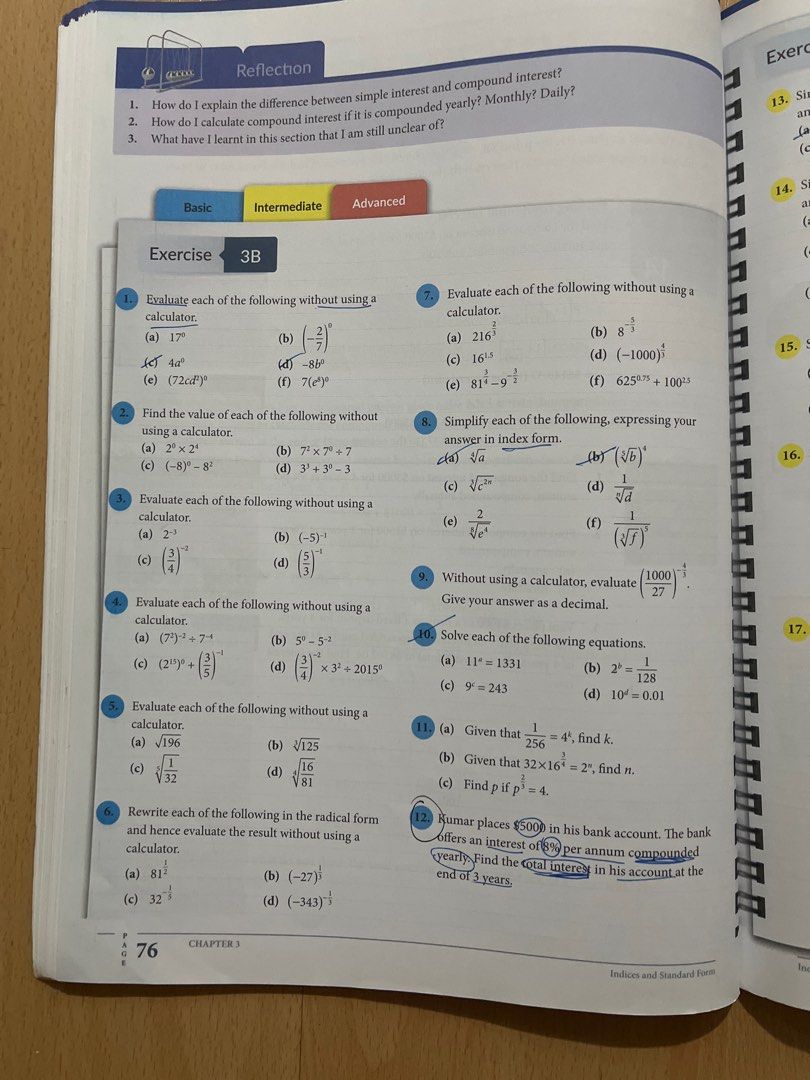 Reflection
1. How do I explain the difference between simple interest and compound interest?
2. How do I calculate compound interest if it is compounded yearly? Monthly? Daily?
3. What have I learnt in this section that I am still unclear of?
Basic
Intermediate
Advanced
Exercise 3B
1. Evaluate each of the following without using a
calculator.
(a) 17⁰ (b) (−2/7)⁰
(c) 4a⁰ (d) −8b⁰
(e) (72cd²)⁰ (f) 7(e⁸)⁰
2. Find the value of each of the following without
using a calculator.
(a) 2⁰ × 2⁴ (b) 7² × 7⁰ ÷ 7
(c) (−8)⁰ − 8² (d) 3³ + 3⁰ − 3
3. Evaluate each of the following without using a
calculator.
(a) 2⁻³ (b) (−5)⁻¹
(c) (3/4)⁻² (d) (5/3)⁻¹
4. Evaluate each of the following without using a
calculator.
(a) (7²)⁻² ÷ 7⁻⁴ (b) 5⁰ − 5⁻²
(c) (2¹⁵)⁰ + (3/5)⁻¹ (d) (3/4)⁻² × 3² ÷ 2015⁰
5. Evaluate each of the following without using a
calculator.
(a) √196 (b) ³√125
(c) ⁵√(1/32) (d) ⁴√(16/81)
6. Rewrite each of the following in the radical form
and hence evaluate the result without using a
calculator.
(a) 81^(1/2) (b) (−27)^(1/3)
(c) 32^(−1/5) (d) (−343)^(−1/3)
7. Evaluate each of the following without using a
calculator.
(a) 216^(2/3) (b) 8^(−5/3)
(c) 16^1.5 (d) (−1000)^(4/3)
(e) 81^(3/4) − 9^(−3/2) (f) 625^0.75 + 100^2.5
8. Simplify each of the following, expressing your
answer in index form.
(a) ⁴√a (b) (⁵√b)⁴
(c) ³√(c²ⁿ) (d)
(e) 2/⁸√(e⁴) (f) 1/(³√f)⁵
9. Without using a calculator, evaluate (1000/27)^(−4/3).
Give your answer as a decimal.
10. Solve each of the following equations.
(a) 11ᵃ = 1331 (b) 2ᵇ = 1/128
(c) 9ᶜ = 243 (d) 10ᵈ = 0.01
11. (a) Given that 1/256 = 4ᵏ, find k.
(b) Given that 32×16^(3/4) = 2ⁿ, find n.
(c) Find p if p^(2/3) = 4.
12. Kumar places $5000 in his bank account. The bank
offers an interest of 8% per annum compounded
yearly. Find the total interest in his account at the
end of 3 years.
PAGE 76 CHAPTER 3
Indices and Standard Form
Exerc
13. Sin
an
(a
(c
14. Si
a
15.
16.
17.